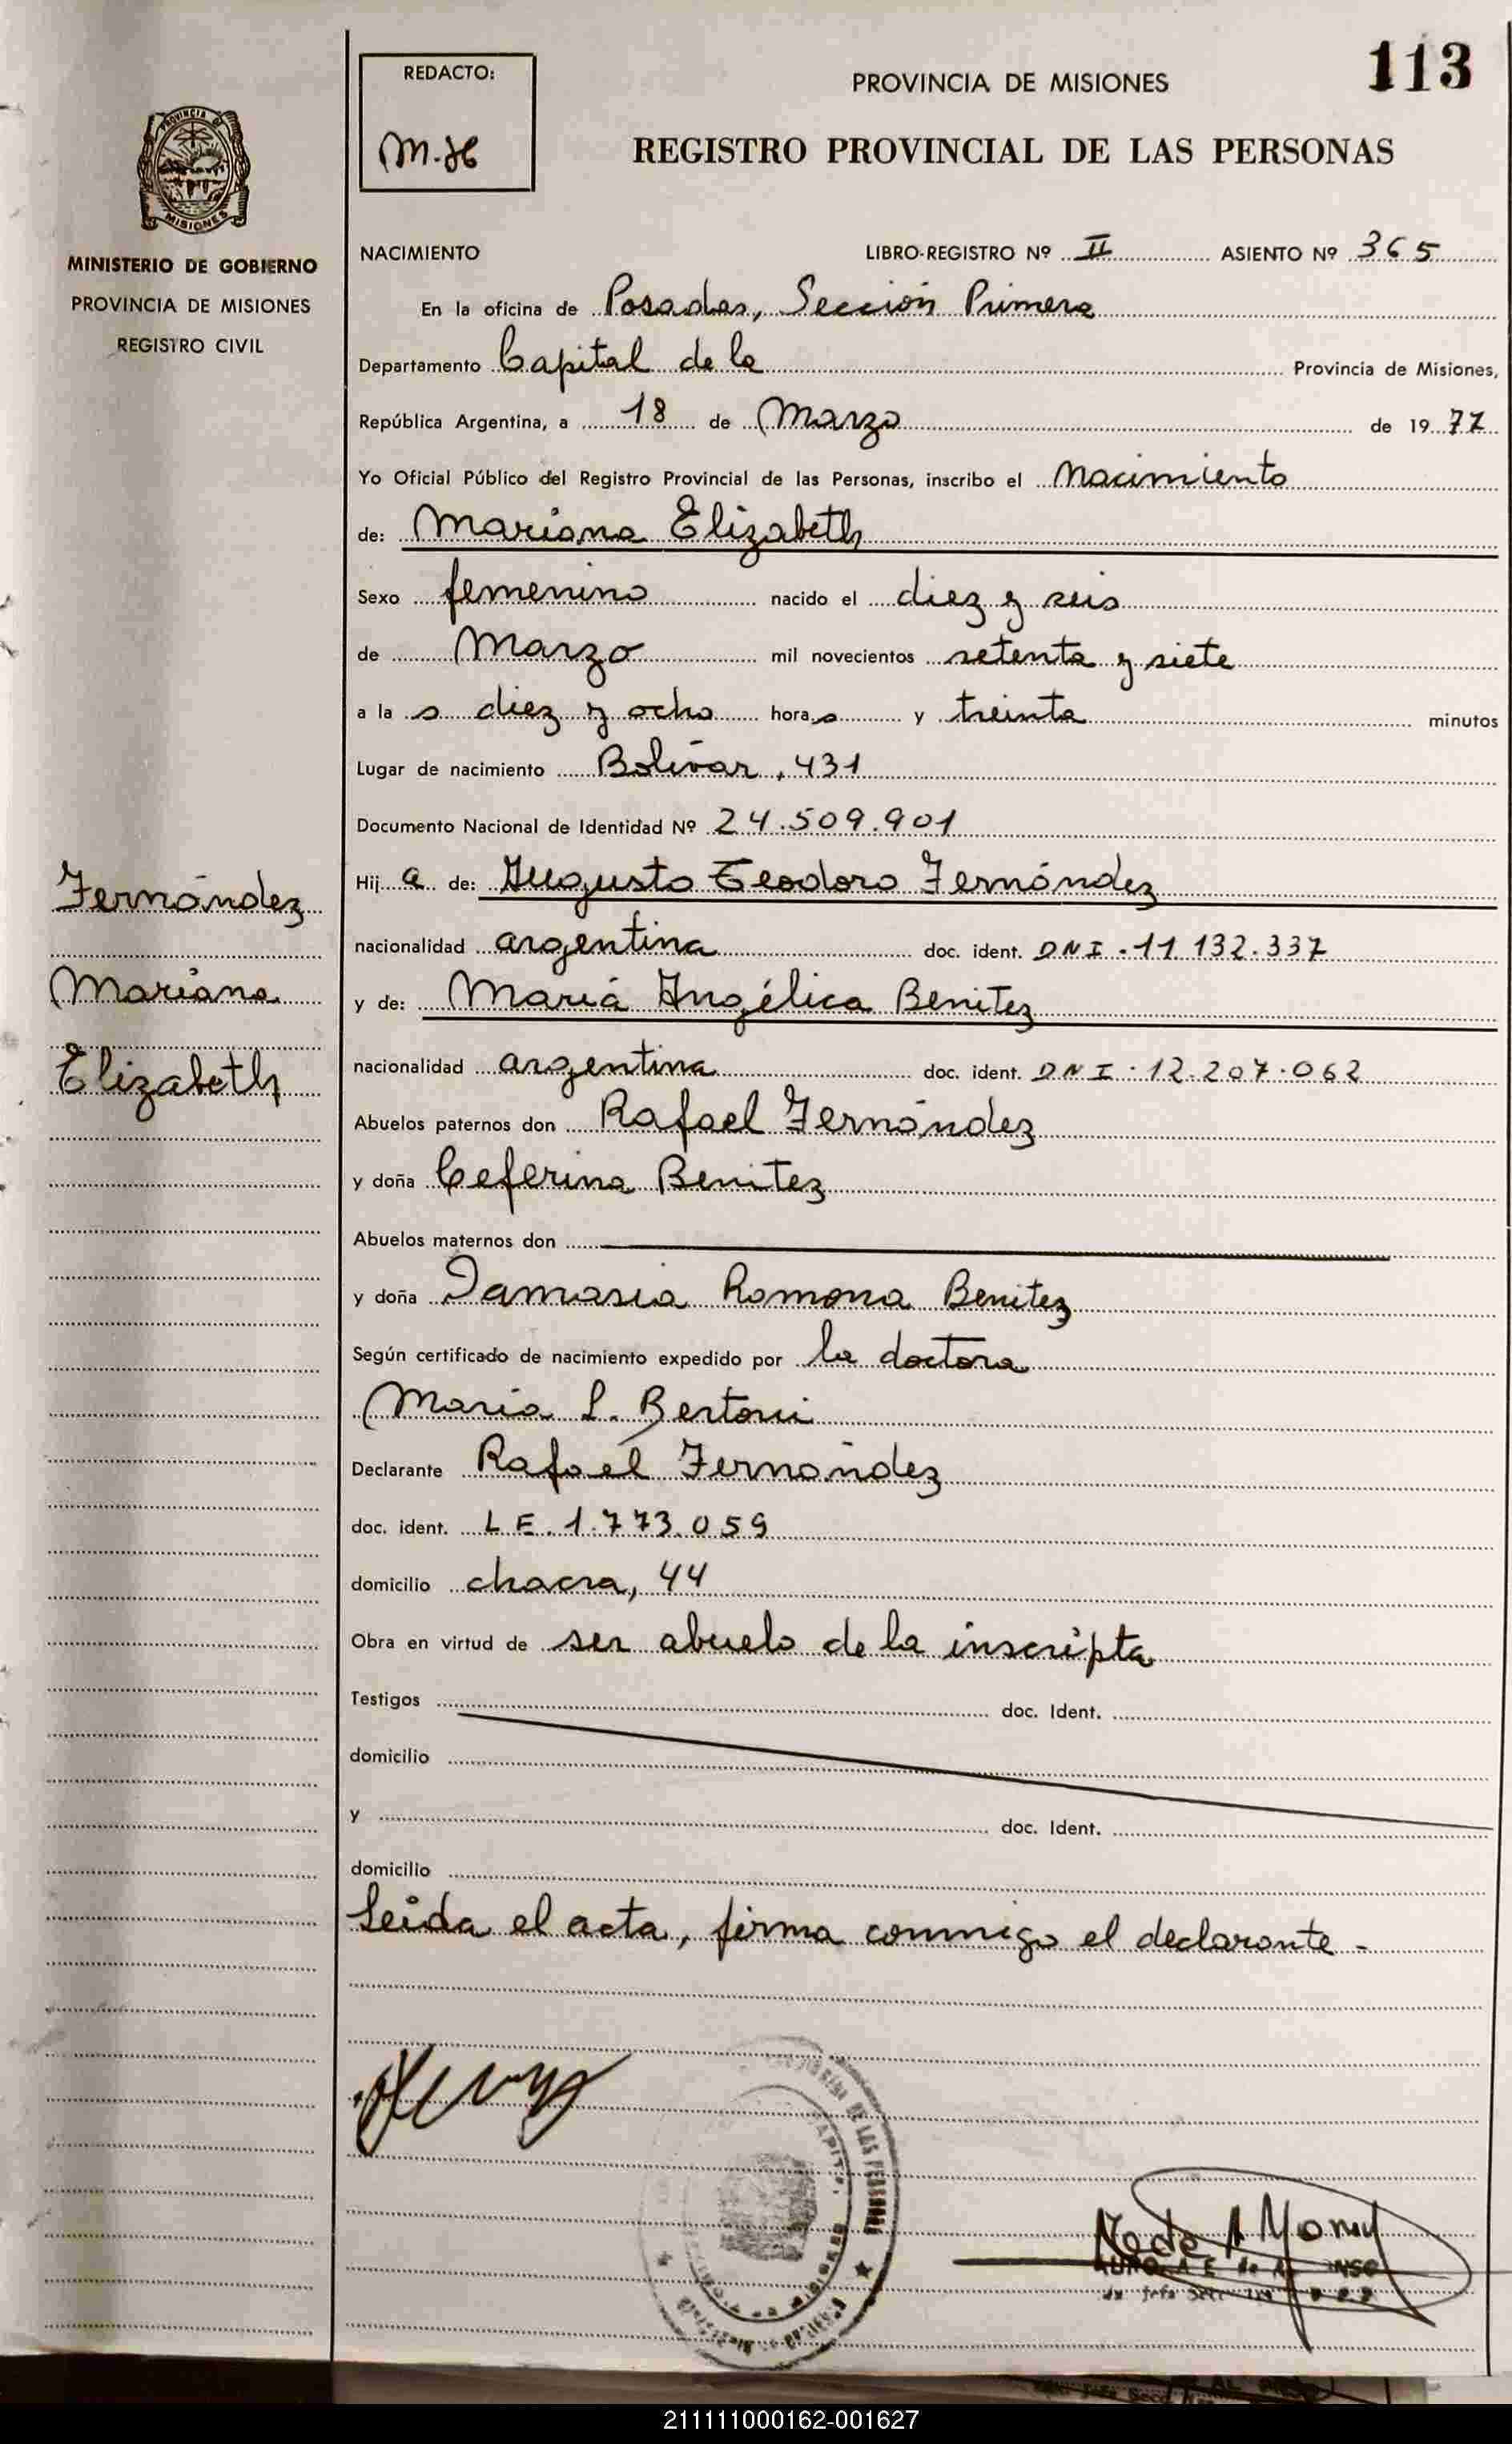 113
REDACTO:
M.H
PROVINCIA DE MISIONES
REGISTRO PROVINCIAL DE LAS PERSONAS
PROVINCIA DE
MISIONES
MINISTERIO DE GOBIERNO
PROVINCIA DE MISIONES
REGISTRO CIVIL
NACIMIENTO LIBRO-REGISTRO Nº II ASIENTO Nº 365
En la oficina de Posadas, Sección Primera
Departamento Capital de la Provincia de Misiones,
República Argentina, a 18 de Marzo de 1977
Yo Oficial Público del Registro Provincial de las Personas, inscribo el Nacimiento
de: Mariana Elizabeth
Sexo femenino nacido el diez y seis
de Marzo mil novecientos setenta y siete
a la s diez y ocho hora s y treinta minutos
Lugar de nacimiento Bolívar, 431
Documento Nacional de Identidad Nº 24.509.901
Hij a de: Augusto Teodoro Fernández
nacionalidad argentina doc. ident. DNI.11.132.337
y de: María Angélica Benitez
nacionalidad argentina doc. ident. DNI.12.207.062
Abuelos paternos don Rafael Fernández
y doña Ceferina Benitez
Abuelos maternos don
y doña Damasia Ramona Benitez
Según certificado de nacimiento expedido por la doctora
María L. Bertoni
Declarante Rafael Fernández
doc. ident. L E. 1.773.059
domicilio chacra, 44
Obra en virtud de ser abuelo de la inscripta
Testigos doc. Ident.
domicilio
y doc. Ident.
domicilio
Leída el acta, firma conmigo el declarante -
Fernández
Mariana
Elizabeth
DE LAS PERSONAS
211111000162-001627